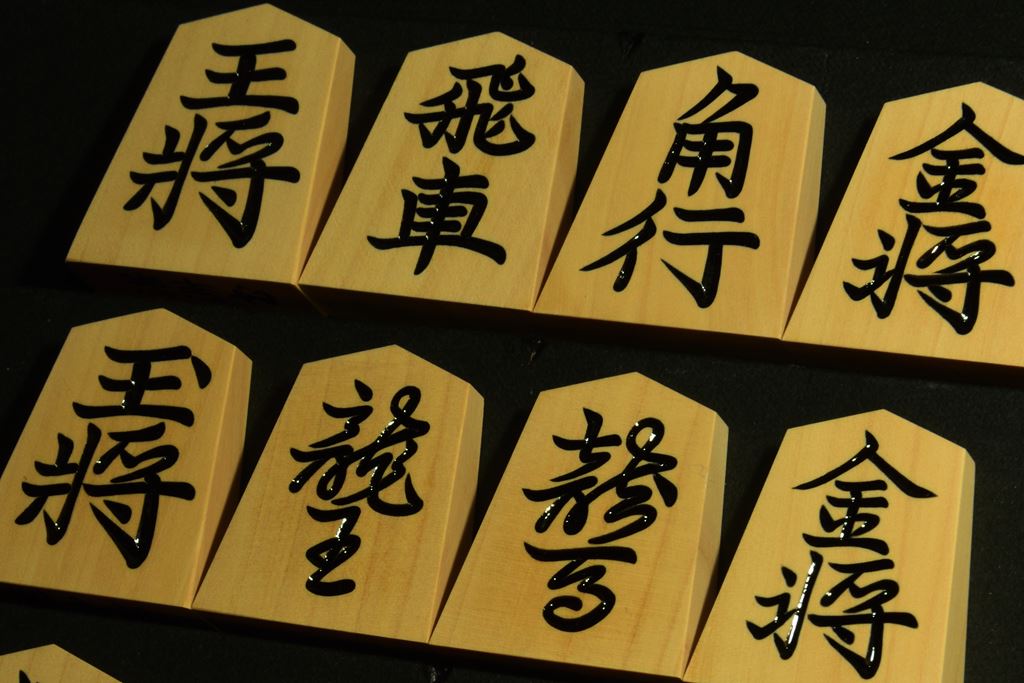 王將
飛車
角行
金将
玉將
龍王
龍馬
金将